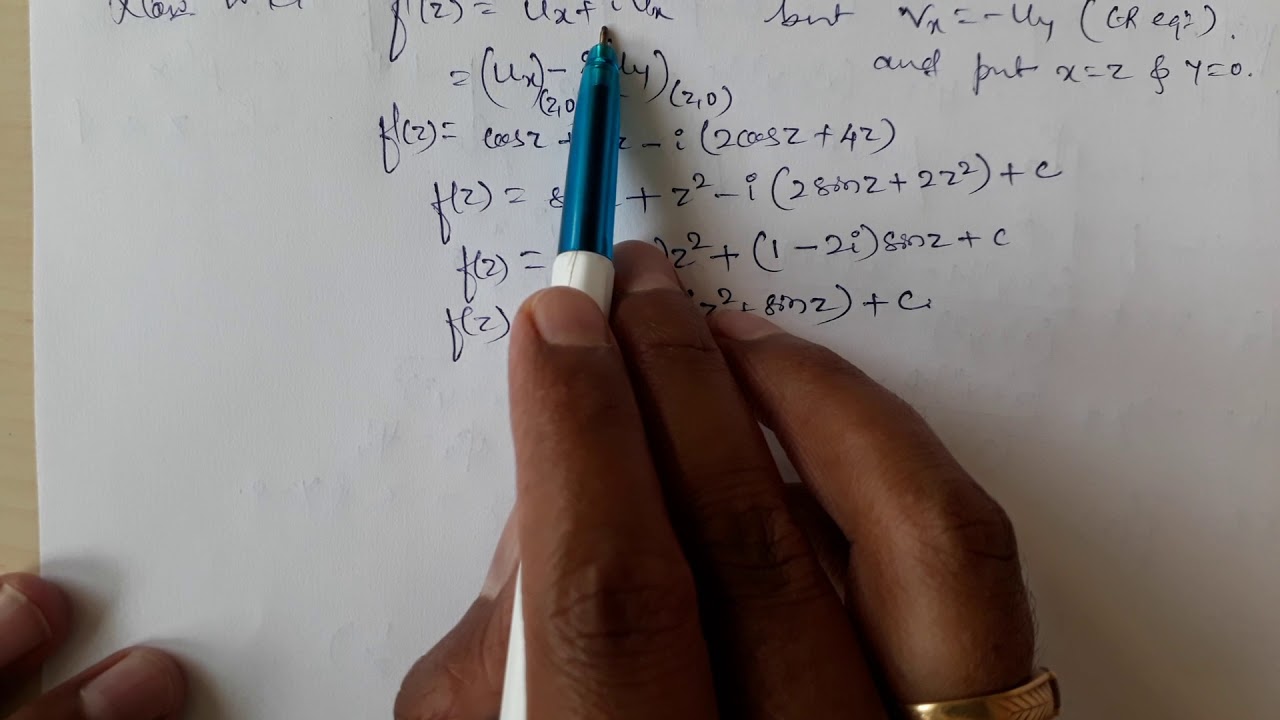 f'(z) = Ux + i Vx but Vx = -Uy (CR eqn).
= (Ux)(z,0) - Uy)(z,0) and put x=z & y=0.
f'(z) = cosz + z - i (2cosz + 4z)
f(z) = + z² - i (2sinz + 2z²) + c
f(z) = )z² + (1-2i)sinz + c
f(z) z² + sinz) + c.